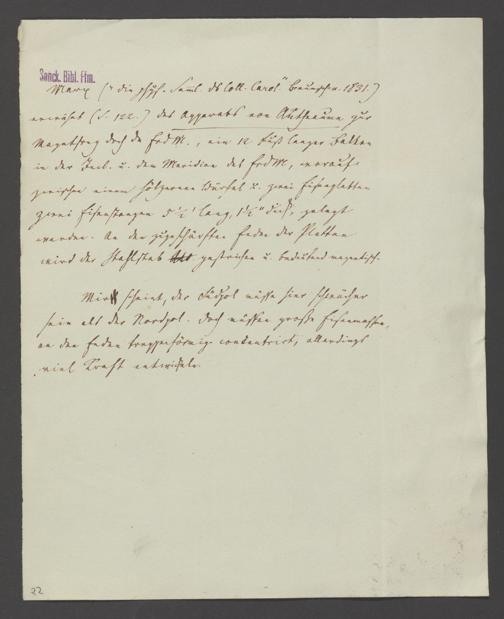 Senck. Bibl. Ffm.
Marx ("die phys. Samml. ds Coll. Carol." Braunschw. 1831.)
erwähnt (S. 122.) des Apparats von Antheaume zur
Magnetisrg durch die Erd M., ein 12 Fuß langer Balken
in der Incl. u. dem Meridian des Erd M, worauf
zwischen einem hölzernen Würfel u. zwei Eisenplatten
zwei Eisenstangen 5 1/2' lang, 1 1/2" dick, gelegt
werden. An den zugeschärften Enden der Platten
wird der Stahlstab gestrichen u. bedeutend magnetisch.
Mir scheint, der Südpol müsse hier schwächer
sein als der Nordpol. Doch müssen große Eisenmassen,
an den Enden treppenförmig concentrirt, allerdings
viel Kraft entwickeln.
22